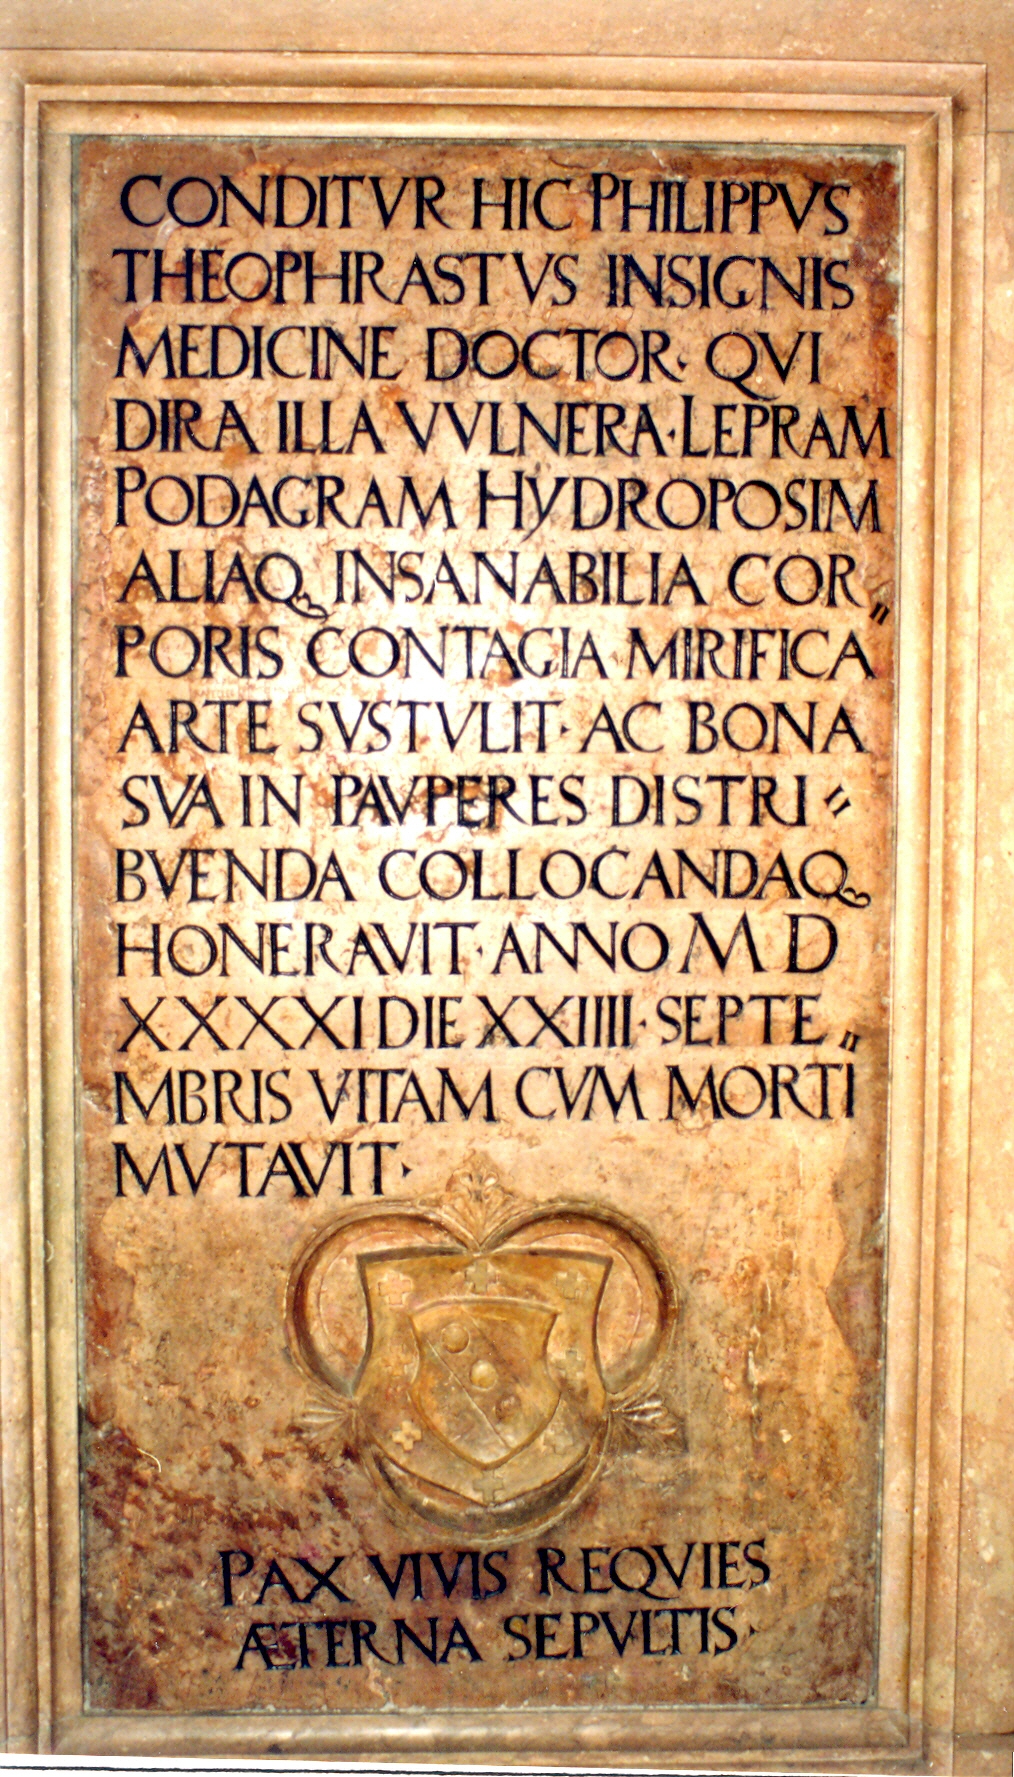 CONDITVR HIC PHILIPPVS
THEOPHRASTVS INSIGNIS
MEDICINE DOCTOR· QVI
DIRA ILLA VVLNERA·LEPRAM
PODAGRAM HYDROPOSIM
ALIAQꝫ INSANABILIA COR〃
PORIS CONTAGIA MIRIFICA
ARTE SVSTVLIT· AC BONA
SVA IN PAVPERES DISTRI〃
BVENDA COLLOCANDAQꝫ
HONERAVIT· ANNO M D
XXXXI DIE XXIIII· SEPTE〃
MBRIS VITAM CVM MORTI
MVTAVIT·
PAX VIVIS REQVIES
ÆTERNA SEPVLTIS·